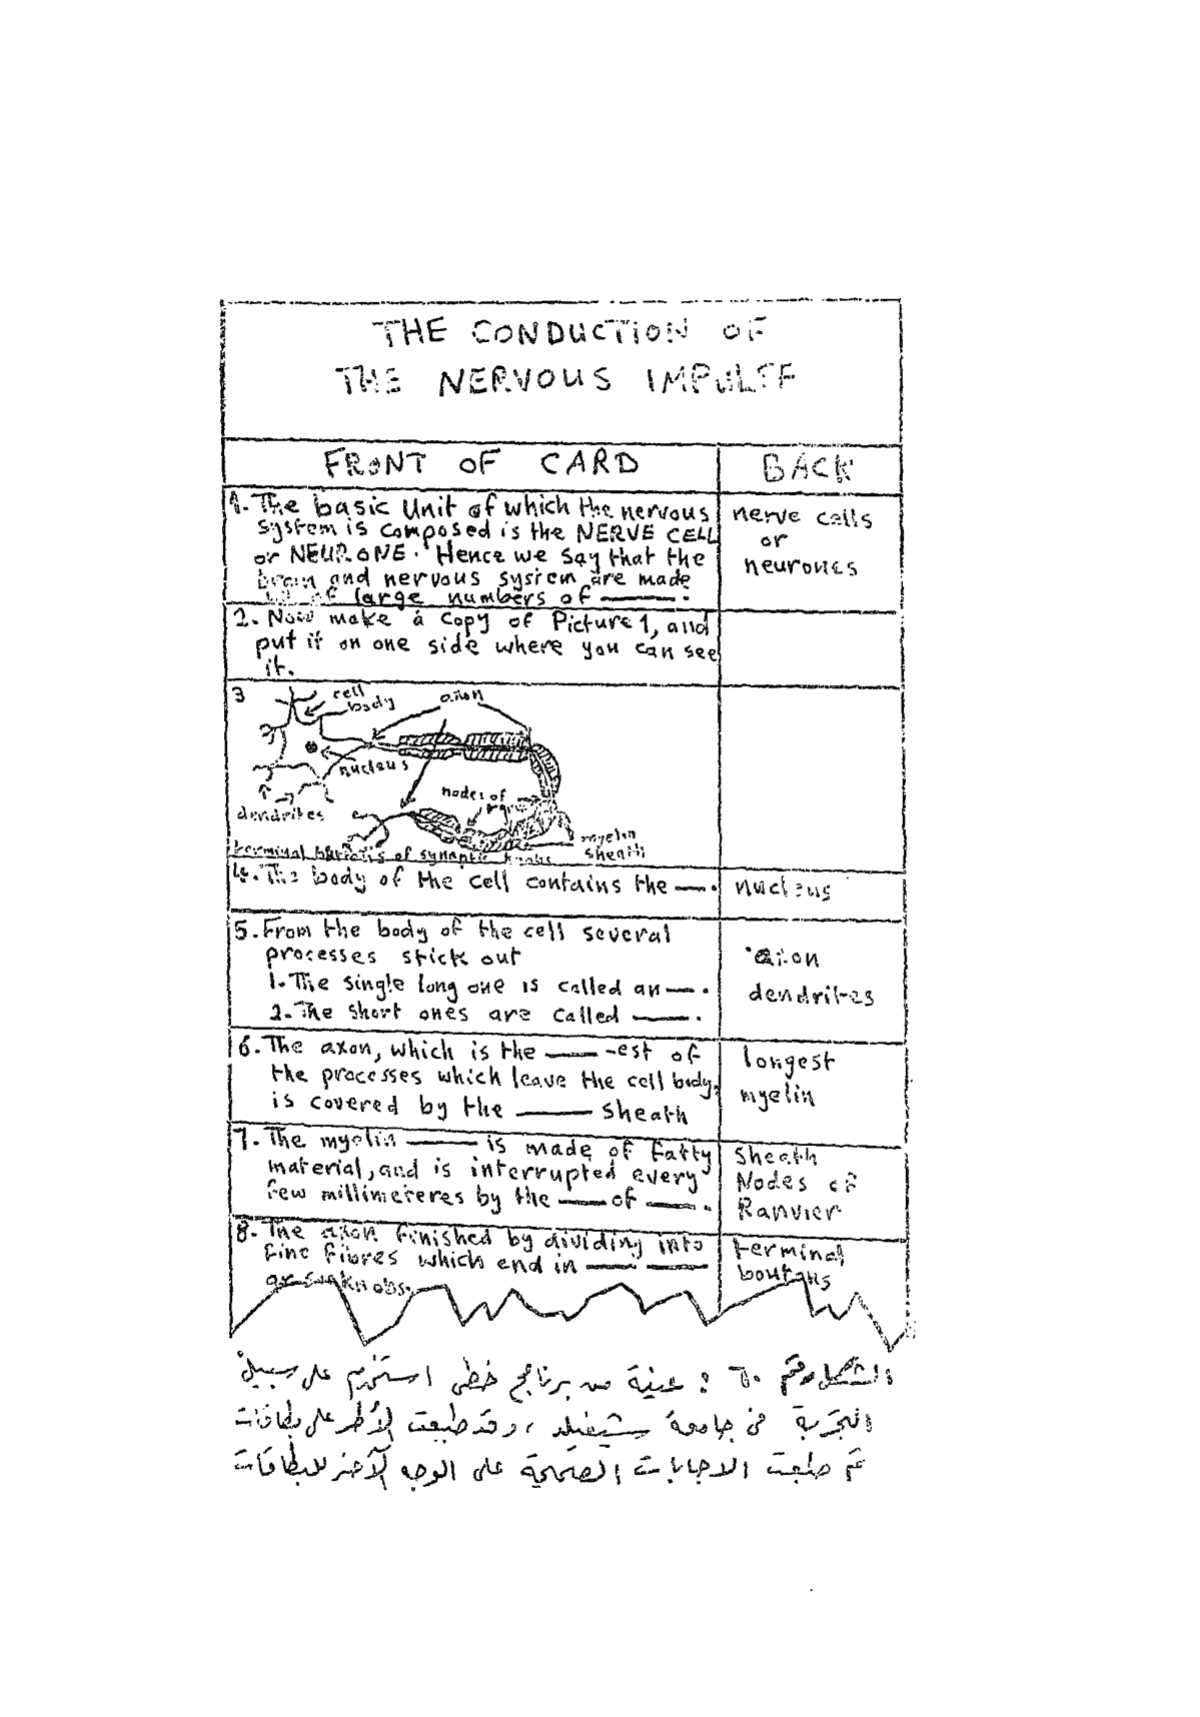 THE CONDUCTION OF
THE NERVOUS IMPULSE
FRONT OF CARD
BACK
1. The basic Unit of which the nervous
system is composed is the NERVE CELL
or NEURONE. Hence we say that the
brain and nervous system are made
up of large numbers of ——.
nerve cells
or
neurones
2. Now make a copy of Picture 1, and
put it on one side where you can see
it.
3
cell
body
axon
nucleus
dendrites
nodes of
myelin
sheath
terminal of synaptic knobs
4. The body of the cell contains the —.
nucleus
5. From the body of the cell several
processes stick out
1. The single long one is called an —.
2. The short ones are called ——.
axon
dendrites
6. The axon, which is the —— -est of
the processes which leave the cell body,
is covered by the —— sheath
longest
myelin
7. The myelin —— is made of fatty
material, and is interrupted every
few millimeteres by the —— of ——.
Sheath
Nodes of
Ranvier
8. The axon finished by dividing into
fine fibres which end in —— ——
knobs.
terminal
boutons
الشكل رقم ٦٠ : عينة من برنامج خطي استخدم على سبيل
التجربة في جامعة شيفيلد ، وقد طبعت الأطر على بطاقات
ثم طبعت الاجابات الصحيحة على الوجه الآخر للبطاقات